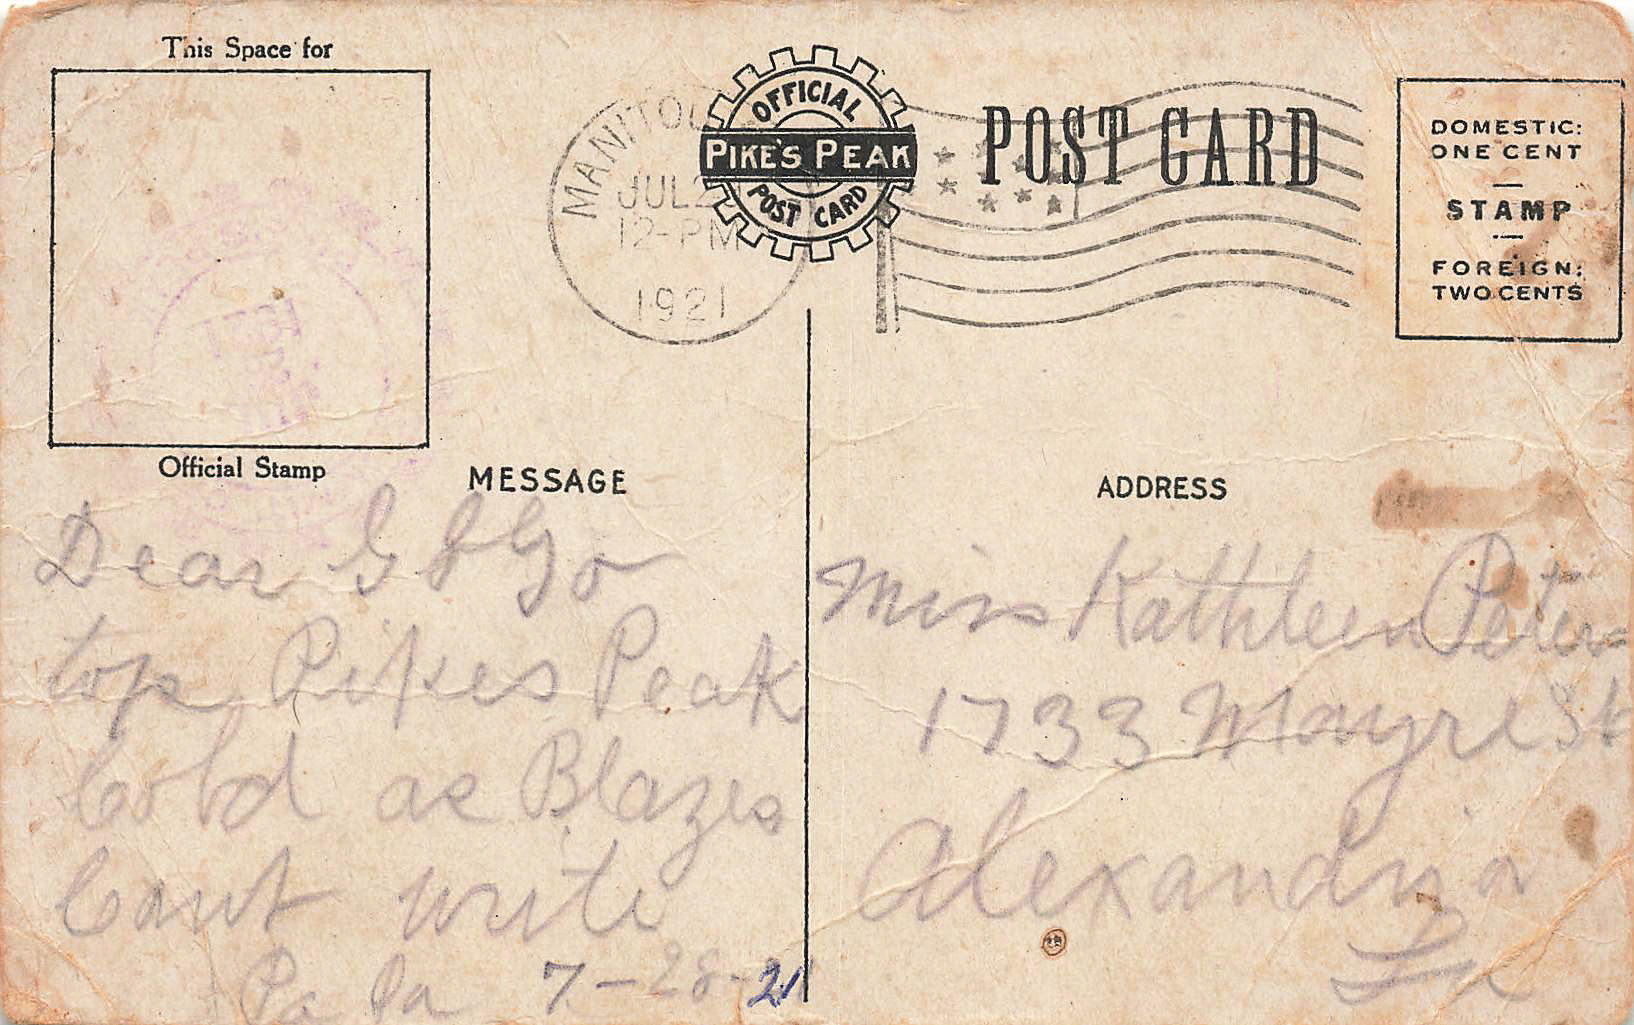 This Space for
Official Stamp
MANITOU
JUL 2
12-PM
1921
OFFICIAL
PIKE'S PEAK
POST CARD
POST CARD
DOMESTIC:
ONE CENT
STAMP
FOREIGN:
TWO CENTS
MESSAGE
Dear
top Pikes Peak
Cold as Blazes
Cant write
Pa Pa 7-28-21
ADDRESS
Miss Kathleen Peters
1733 Mayre St
Alexandria
La